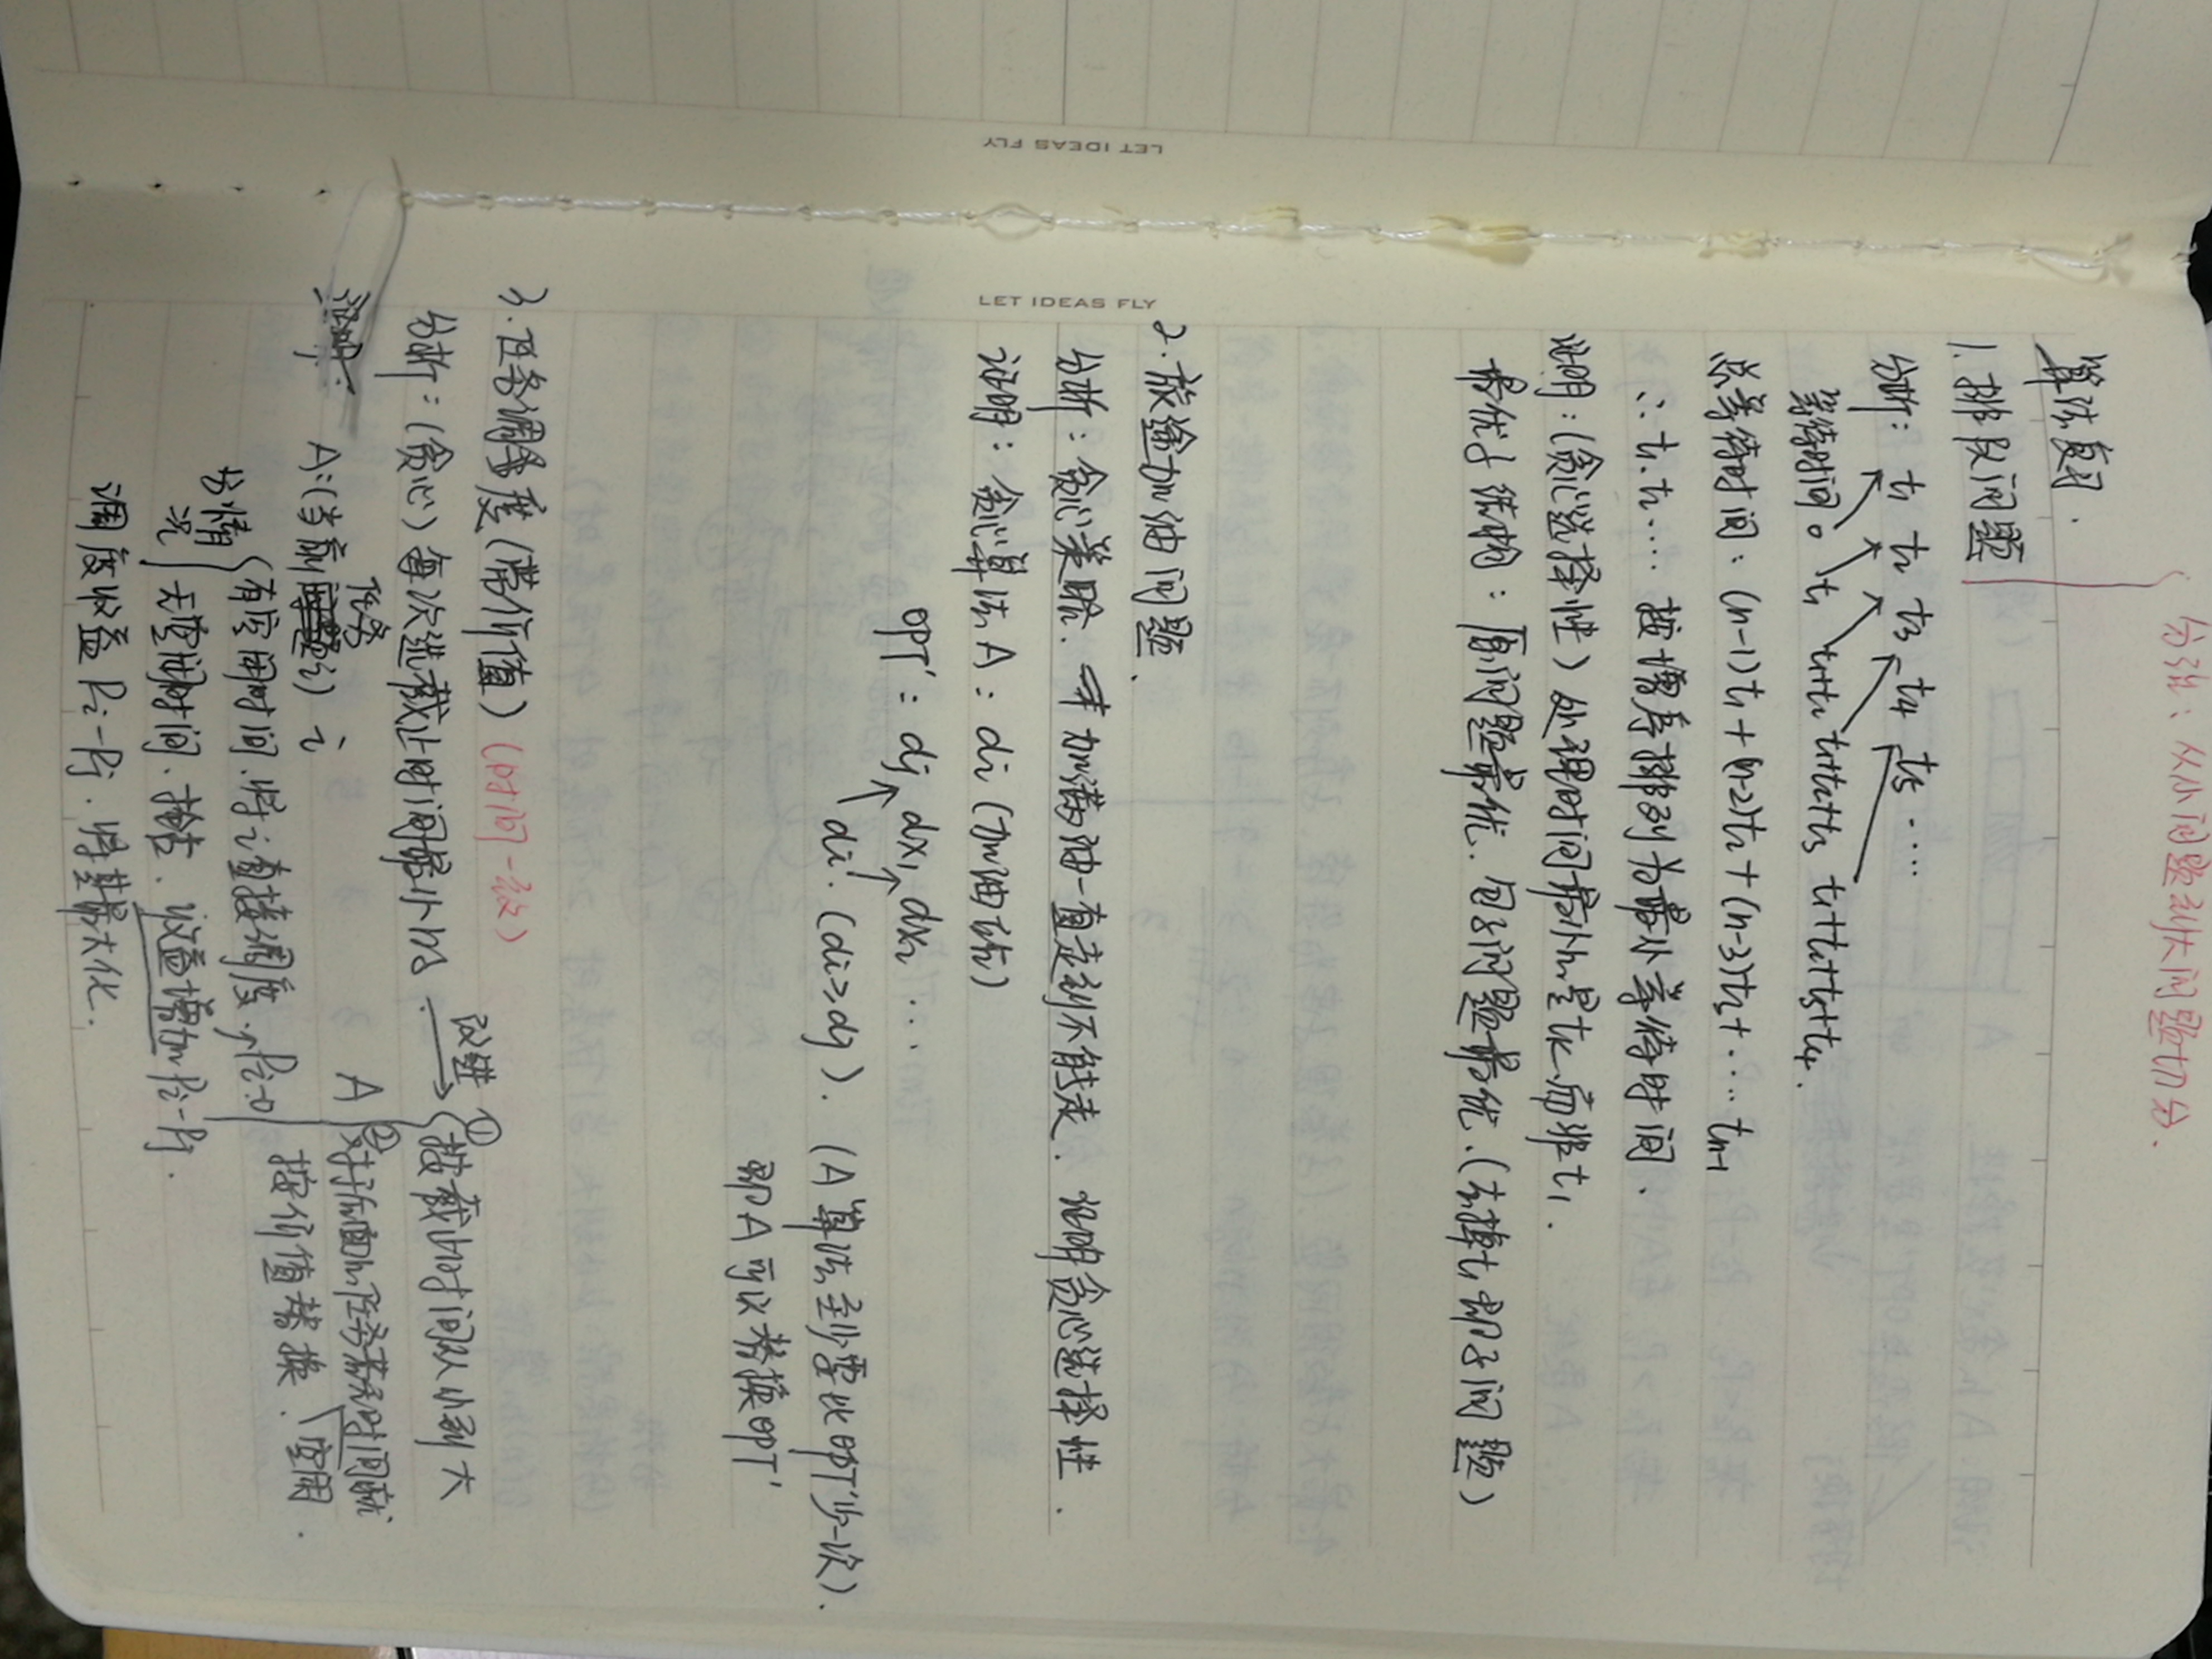 分治：从小问题到大问题切分.
算法复习.
1. 排队问题
分析： t1 t2 t3 t4 t5 ....
等待时间 0 t1 t1+t2 t1+t2+t3 t1+t2+t3+t4.
总等待时间：(n-1)t1 + (n-2)t2 + (n-3)t3 + .... tn-1
∴ t1. t2 .... 按增序排列为最小等待时间.
证明：(贪心选择性) 处理时间最小的是tk 而非t1.
最优子结构：原问题最优. 包子问题最优.(去掉t1 即子问题)
2. 旅途加油问题.
分析：贪心策略. 加满油一直走到不能走. 证明贪心选择性.
证明：贪心算法A：di (加油站)
OPT'：dj dx1 dx2 ...
di. (di≥dj). (A算法至少要比OPT'少一次).
即A可以替换OPT'
3. 任务调度(带价值) (时间一致)
分析：(贪心) 每次选截止时间最小的 改进
① 按截止时间从小到大
A ② 对于后面的任务若无时间就
按价值替换. 空闲.
证明.
任务
A:(当前问题i) i
分情况
有空闲时间.将i直接调度. Pi-0
无空闲时间. 抢占. 收益增加Pi-Pj.
调度收益 Pi-Pj. 将其最大化.
LET IDEAS FLY
LET IDEAS FLY